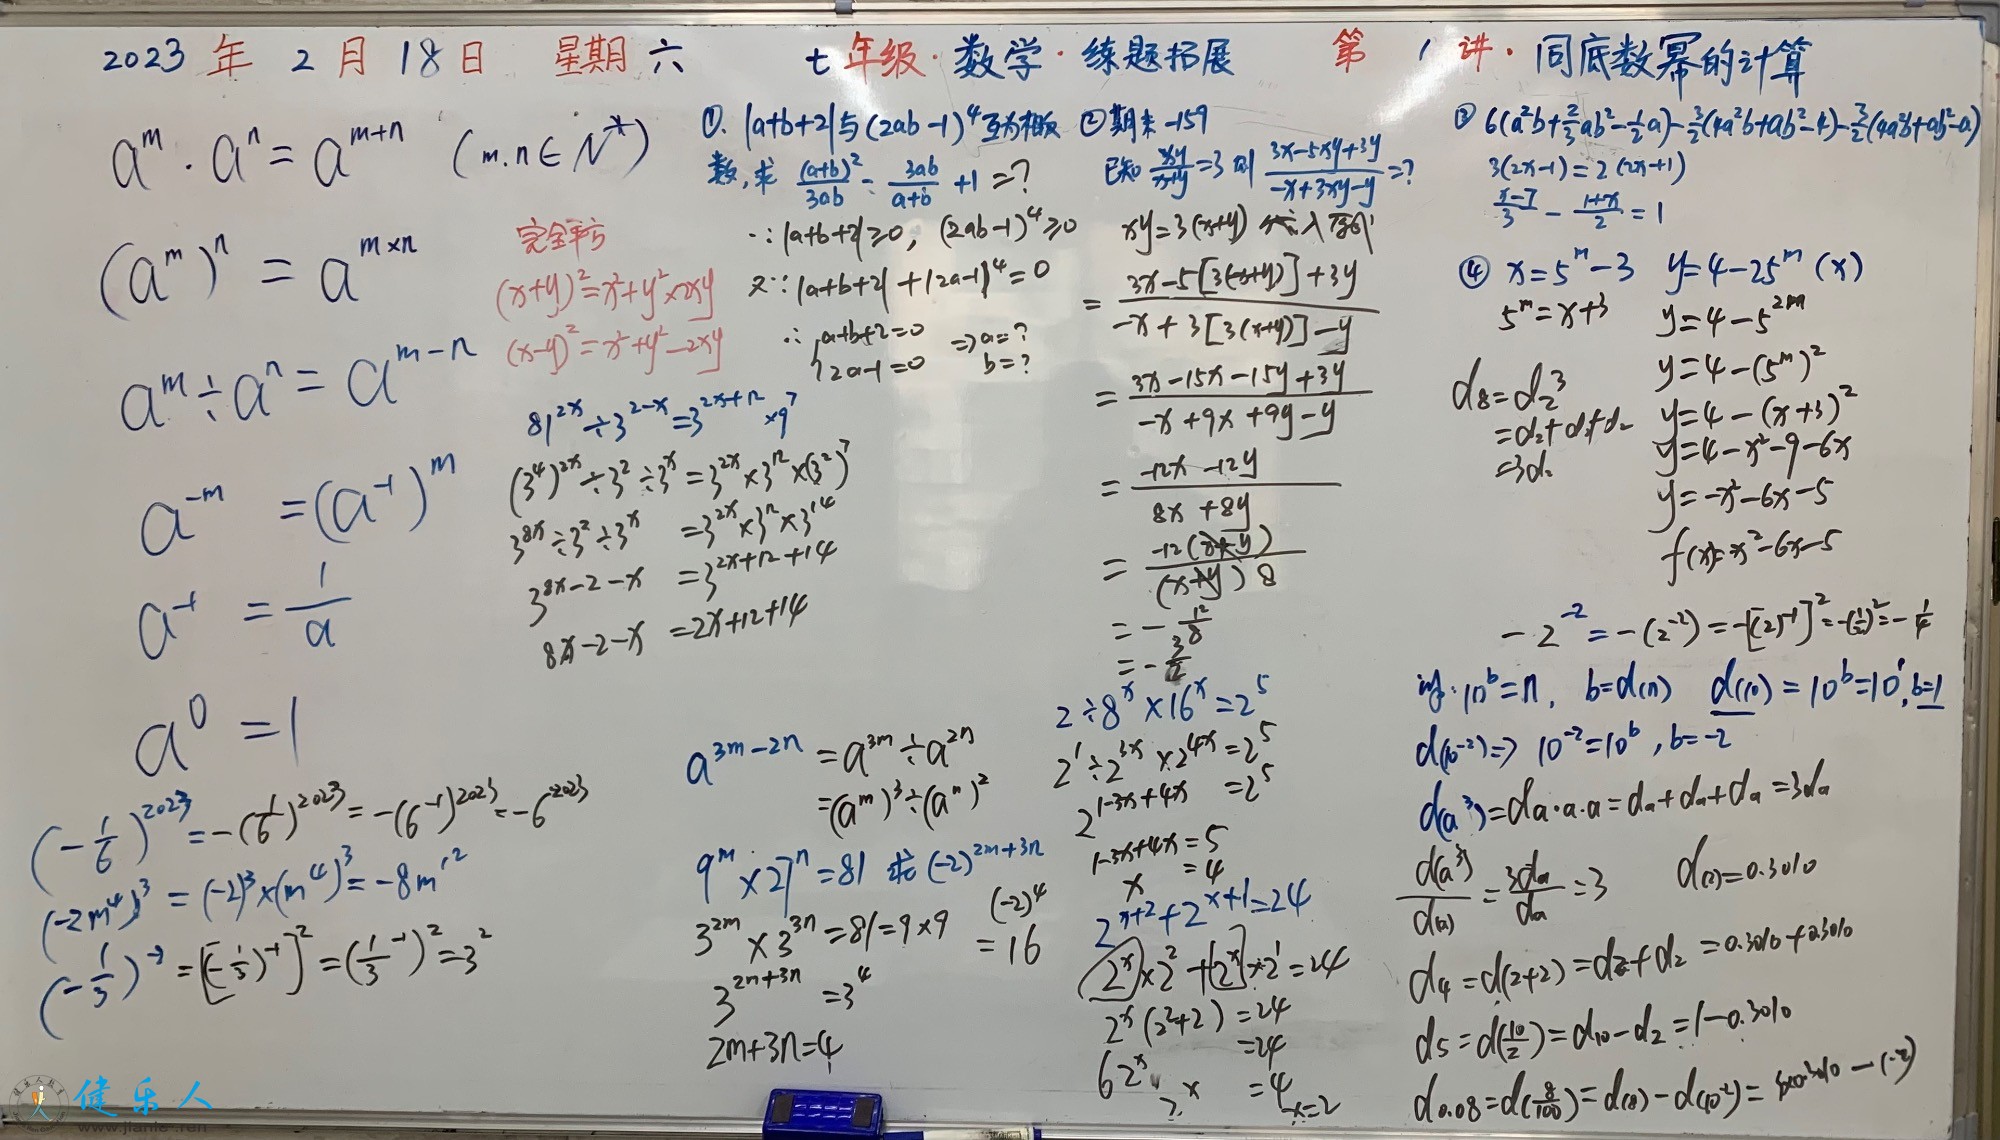 2023 年 2 月 18 日 星期 六 七 年级 · 数学 · 练题拓展 第 1 讲 · 同底数幂的计算
a^m · a^n = a^{m+n} (m.n∈N^*)
(a^m)^n = a^{m×n}
a^m ÷ a^n = a^{m-n}
a^{-m} = (a^{-1})^m
a^{-1} = 1/a
a^0 = 1
(-1/6)^{2023} = -(1/6)^{2023} = -(6^{-1})^{2023} = -6^{-2023}
(-2m^4)^3 = (-2)^3×(m^4)^3 = -8m^{12}
= [(-1/3)^{-1}]^2 = (1/3^{-1})^2 = 3^2
完全平方
(x+y)^2=x^2+y^2×2xy
(x-y)^2=x^2+y^2-2xy
81^{2x}÷3^{2-x}=3^{2x+12}×9^7
(3^4)^{2x}÷3^2÷3^x=3^{2x}×3^{12}×(3^2)^7
3^{8x}÷3^2÷3^x =3^{2x}×3^{12}×3^{14}
3^{8x-2-x} =3^{2x+12+14}
8x-2-x =2x+12+14
①. |a+b+2|与(2ab-1)^4互为相反
数,求 (a+b)^2/3ab - 3ab/(a+b) +1 =?
∵|a+b+2|≥0, (2ab-1)^4≥0
又∵|a+b+2|+|2a-1|^4=0
∴ {a+b+2=0 ⇒a=?
2a-1=0 b=?
a^{3m-2n} = a^{3m}÷a^{2n}
=(a^m)^3÷(a^n)^2
9^m×27^n=81 求(-2)^{2m+3n}
3^{2m}×3^{3n}=81=9×9 (-2)^4
3^{2m+3n} =3^4 =16
2m+3n=4
②期末-159
已知 xy/(x+y)=3 则 (3x-5xy+3y)/(-x+3xy-y)=?
xy=3(x+y)
= (3x-5[3(x+y)]+3y)/(-x+3[3(x+y)]-y)
= (3x-15x-15y+3y)/(-x+9x+9y-y)
= (-12x-12y)/(8x+8y)
= -12(x+y)/(x+y)8
= -12/8
= -3/2
2÷8^x×16^x=2^5
2^1÷2^{3x}×2^{4x}=2^5
2^{1-3x+4x} =2^5
1-3x+4x=5
x =4
2^{x+2}+2^{x+1}=24
2^x×2^2+2^x×2^1=24
2^x(2^2+2) =24
6 2^x =24
2^x =4 x=2
③ 6(a^2b+2/3ab^2-1/2a)-3/2(4a^2b+ab^2-4)-3/2(4a^2b+ab^2-a)
3(2x-1)=2(2x+1)
(x-7)/3 - (1+x)/2 =1
④ x=5^m-3 y=4-25^m (x)
5^m=x+3 y=4-5^{2m}
y=4-(5^m)^2
y=4-(x+3)^2
y=4-x^2-9-6x
y=-x^2-6x-5
f(x)=x^2-6x-5
d_8=d_2^3
=d_2+d_2+d_2
=3d_2
-2^{-2}=-(2^{-2})=-[(2)^{-1}]^2=-(1/2)^2=-1/4
10^b=n, b=d(n) d(10)=10^b=10^1,b=1
d(10^{-2})⇒10^{-2}=10^b, b=-2
d(a^3)=d_a·a·a=d_a+d_a+d_a=3d_a
d(a^3)/d(a)=3d_a/d_a=3 d(2)=0.3010
d_4=d(2+2)=d_2+d_2=0.3010+0.3010
d_5=d(10/2)=d_10-d_2=1-0.3010
d_{0.08}=d(8/100)=d(8)-d(10^{-2})=
健乐人
www.jianle.ren